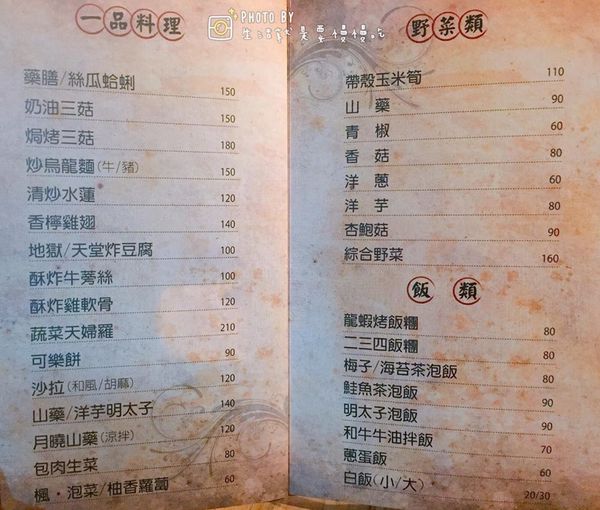 PHOTO BY
生活家
一品料理
藥膳/絲瓜蛤蜊 150
奶油三菇 150
焗烤三菇 180
炒烏龍麵(牛/豬) 150
清炒水蓮 120
香檸雞翅 140
地獄/天堂炸豆腐 100
酥炸牛蒡絲 100
酥炸雞軟骨 120
蔬菜天婦羅 210
可樂餅 90
沙拉(和風/胡麻) 120
山藥/洋芋明太子 140
月曉山藥(涼拌) 120
包肉生菜 80
楓・泡菜/柚香蘿蔔 60
野菜類
帶殼玉米筍 110
山藥 90
青椒 60
香菇 80
洋蔥 60
洋芋 80
杏鮑菇 90
綜合野菜 160
飯類
龍蝦烤飯糰 80
二三四飯糰 80
梅子/海苔茶泡飯 80
鮭魚茶泡飯 90
明太子泡飯 90
和牛牛油拌飯 70
蔥蛋飯 60
白飯(小/大) 20/30